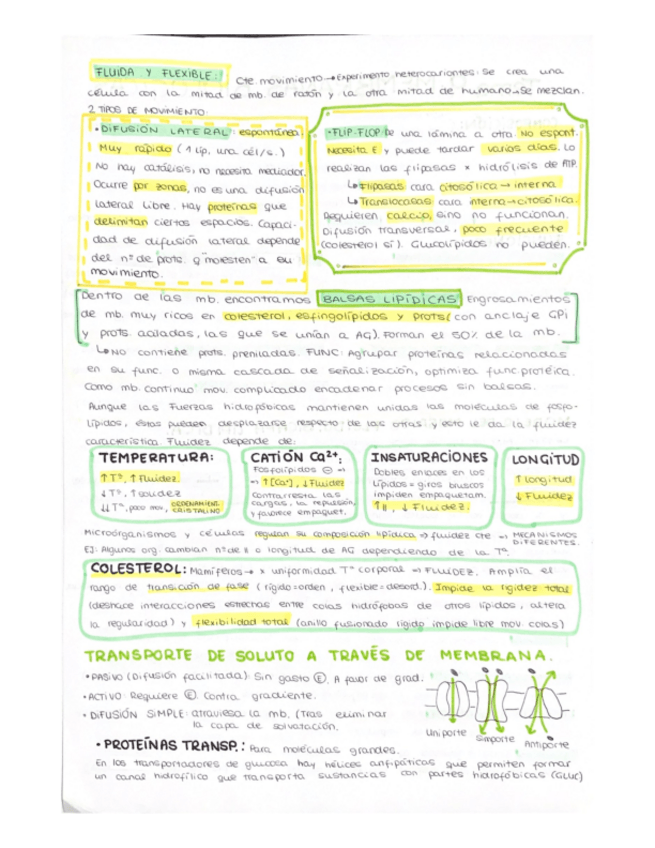 FLUIDA Y FLEXIBLE: Cte movimiento → Experimento heterocariontes: Se crea una
célula con la mitad de mb. de ratón y la otra mitad de humano → Se mezclan.
2 TIPOS DE MOVIMIENTO:
• DIFUSIÓN LATERAL: espontánea.
Muy rápido (1 lip. una cél/s.)
No hay catálisis, no necesita mediador.
Ocurre por zonas, no es una difusión
lateral libre. Hay proteínas que
delimitan ciertos espacios. Capaci-
dad de difusión lateral depende
del nº de prots. q "molesten" a su
movimiento.
• FLIP-FLOP: De una lámina a otra. No espont.
Necesita E y puede tardar varios días. Lo
realizan las flipasas x hidrólisis de ATP.
↳ Flipasas cara citosólica → interna
↳ Translocasas cara interna → citosólica.
Requieren calcio, sino no funcionan.
Difusión transversal, poco frecuente
(colesterol sí). Glucolípidos no pueden.
Dentro de las mb. encontramos BALSAS LIPÍDICAS. Engrosamientos
de mb. muy ricos en colesterol, esfingolípidos y prots (con anclaje GPI
y prots aciladas, las que se unían a AG). Forman el 50% de la mb.
↳ No contiene prots. preniladas. FUNC: Agrupar proteínas relacionadas
en su func. o misma cascada de señalización, optimiza func proteica.
Como mb. continuo mov. complicado encadenar procesos sin balsas.
Aunque las Fuerzas hidrofóbicas mantienen unidas las moléculas de fosfo-
lípidos, éstas pueden desplazarse respecto de las otras y esto le da la fluidez
característica. Fluidez depende de:
TEMPERATURA:
↑ Tª, ↑ Fluidez.
↓ Tª, ↑ solidez
↓↓ Tª, poco mov, ORDENAMIENT. CRISTALINO
CATIÓN Ca²⁺:
Fosfolípidos ⊖ ⇒
⇒ ↑ [Ca⁺], ↓ Fluidez
Contrarresta las
cargas, la repulsión
y favorece empaquet.
INSATURACIONES
Dobles enlaces en los
lípidos = giros bruscos
impiden empaquetam.
↑ ||, ↓ Fluidez.
LONGITUD
↑ Longitud
↓ Fluidez
Microorganismos y células regulan su composición lipídica ⇒ fluidez cte ⇒ MECANISMOS DIFERENTES.
EJ: Algunos org. cambian nº de || o longitud de AG dependiendo de la Tª.
COLESTEROL: Mamíferos → x uniformidad Tª corporal ⇒ FLUIDEZ. Amplía el
rango de transición de fase (rígido = orden, flexible = desord.). Impide la rigidez total
(deshace interacciones estrechas entre colas hidrófobas de otros lípidos, altera
la regularidad) y flexibilidad total (anillo fusionado rígido impide libre mov. colas)
TRANSPORTE DE SOLUTO A TRAVÉS DE MEMBRANA.
• PASIVO (Difusión facilitada): Sin gasto Ⓔ. A favor de grad.
• ACTIVO: Requiere Ⓔ. Contra gradiente.
• DIFUSIÓN SIMPLE: atraviesa la mb. (Tras eliminar
la capa de solvatación.
Uniporte Simporte Antiporte
• PROTEÍNAS TRANSP.: Para moléculas grandes.
En los transportadores de glucosa hay hélices anfipáticas que permiten formar
un canal hidrofílico que transporta sustancias con partes hidrofóbicas (GLUC)